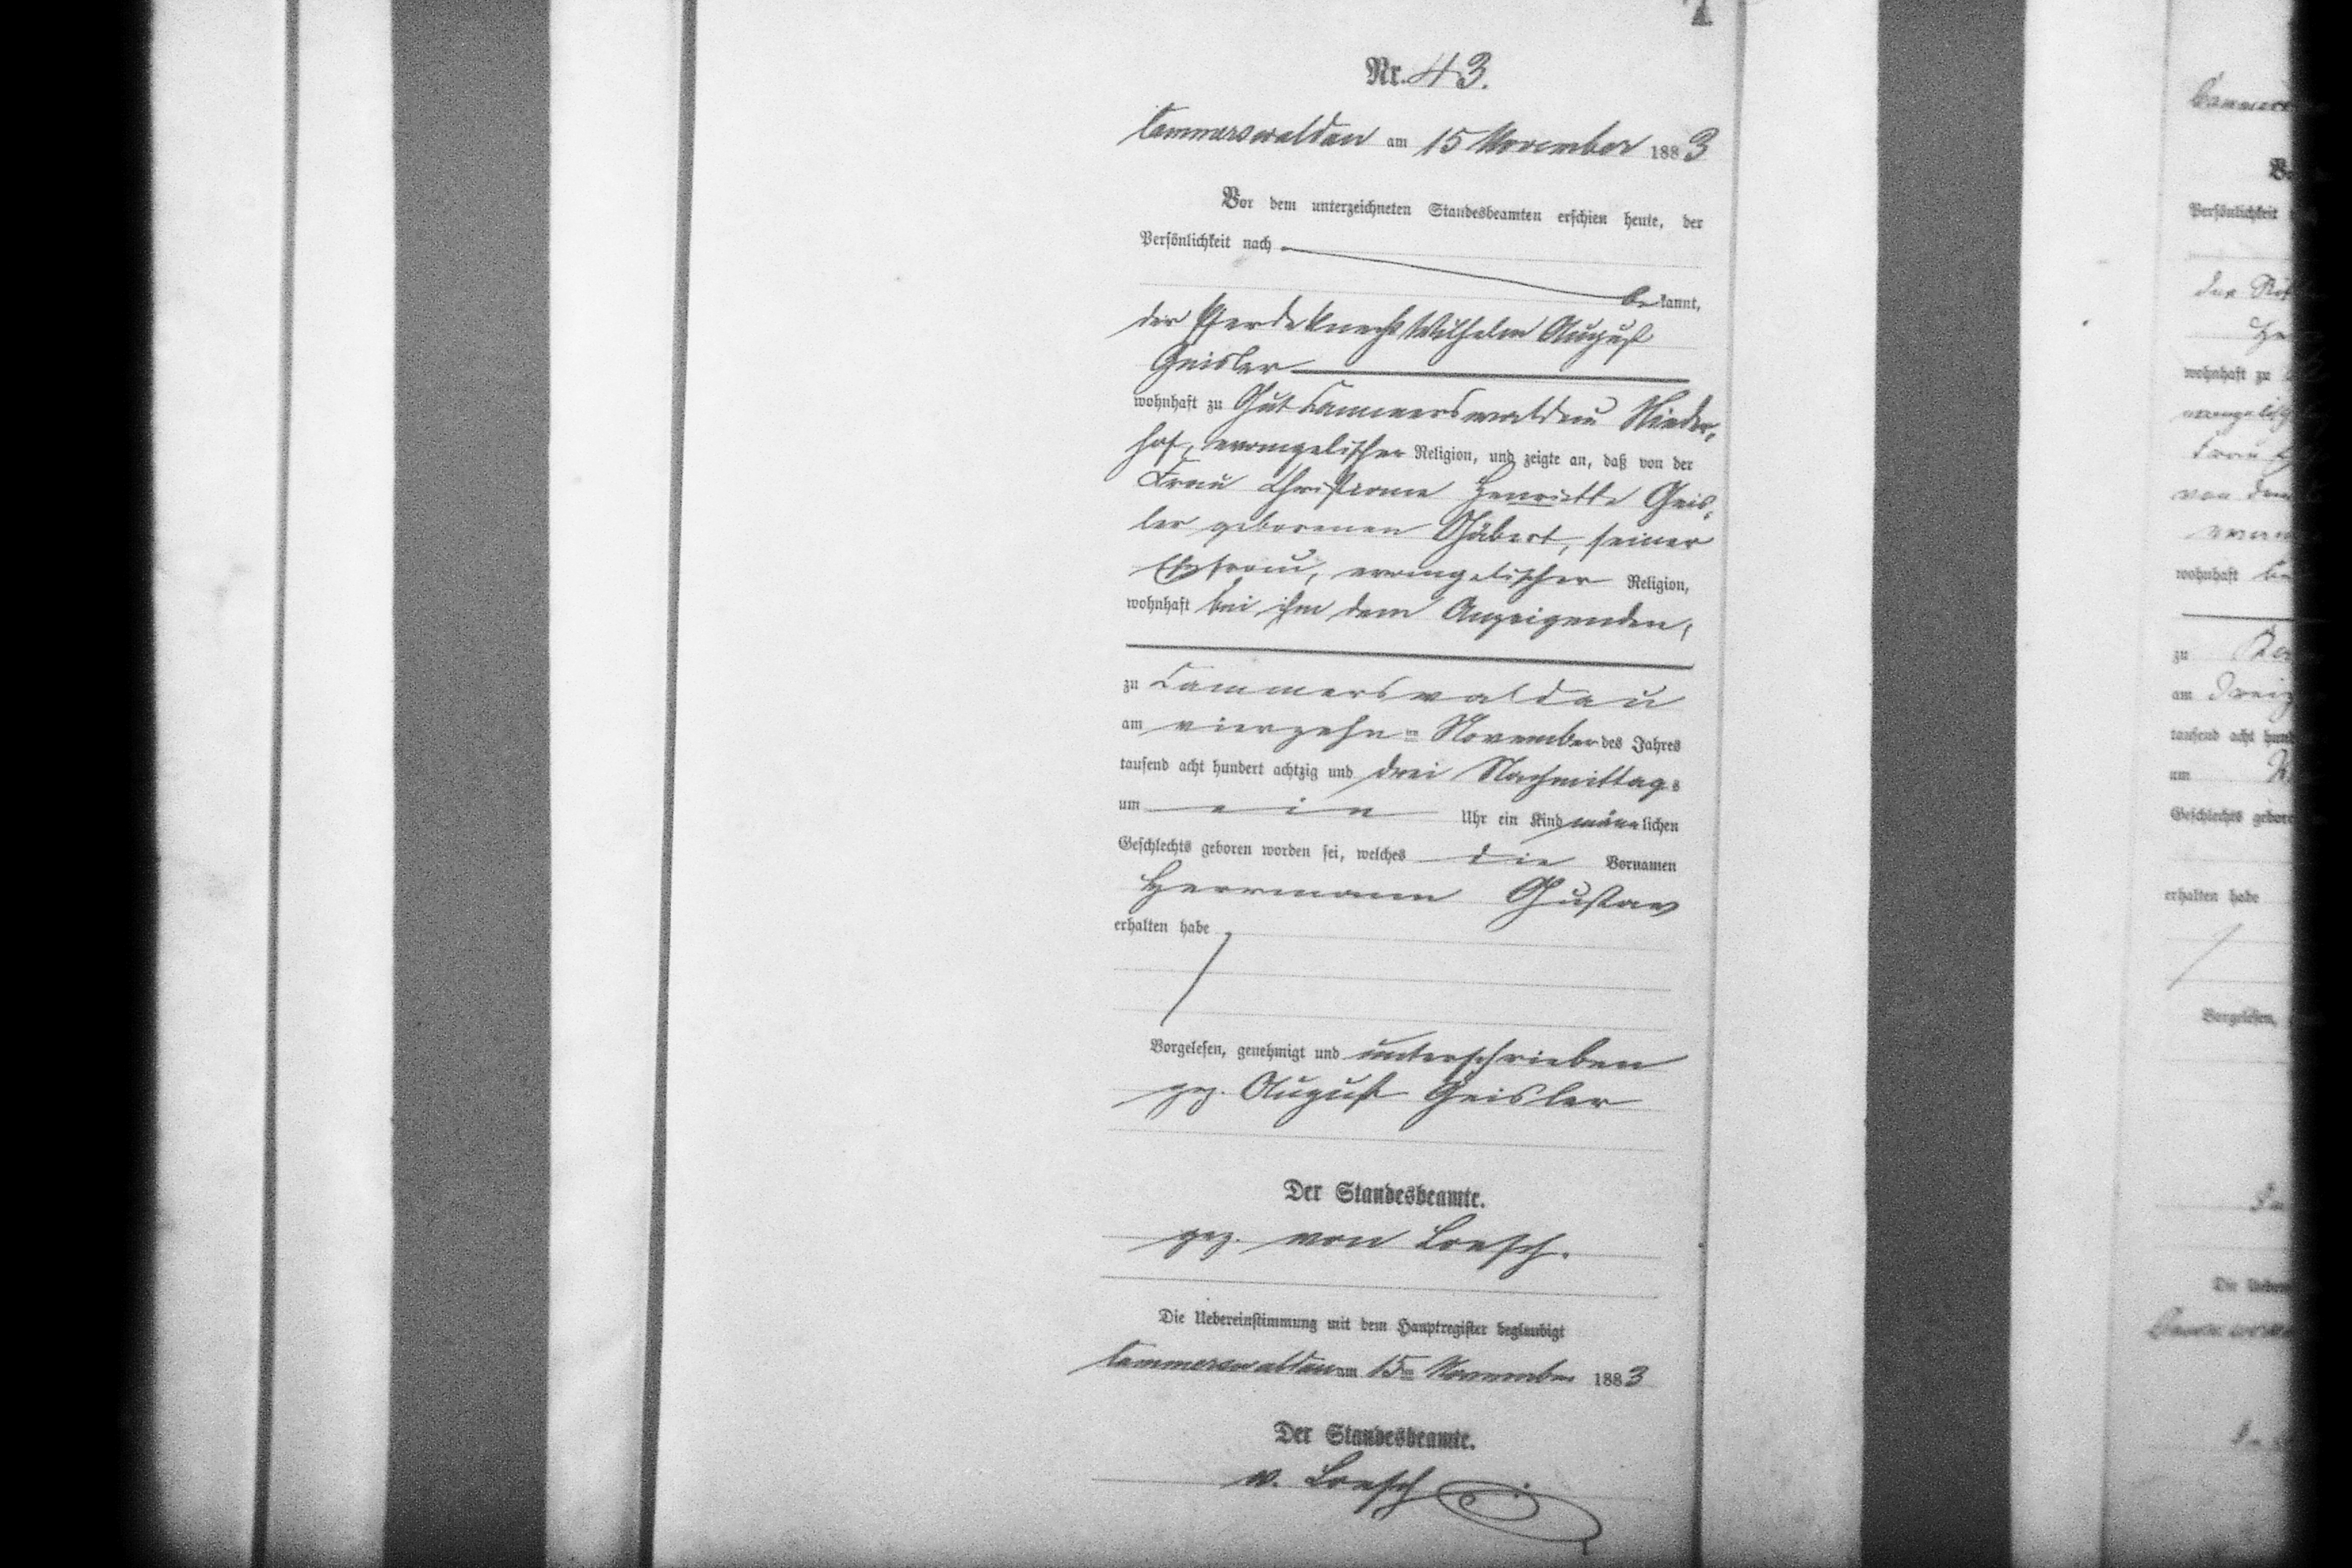 Nr. 43.
Cammerswaldau am 15 November 1883
Vor dem unterzeichneten Standesbeamten erschien heute, der
Persönlichkeit nach
bekannt,
der Pferdeknecht Wilhelm August
Geisler
wohnhaft zu Gut Cammerswaldau Nieder-
hof, evangelischer Religion, und zeigte an, daß von der
Frau Christiane Henriette Geis-
ler geborenen Schubert, seiner
Ehefrau, evangelischer Religion,
wohnhaft bei ihm dem Anzeigenden,
zu Cammerswaldau
am vierzehnten November des Jahres
tausend acht hundert achtzig und drei Nachmittags
um ein Uhr ein Kind männlichen
Geschlechts geboren worden sei, welches die Vornamen
Herrmann Gustav
erhalten habe
Vorgelesen, genehmigt und unterschrieben
gez. August Geisler
Der Standesbeamte.
gez. von Loesch.
Die Uebereinstimmung mit dem Hauptregister beglaubigt
Cammerswaldau am 15ten November 1883
Der Standesbeamte.
v. Loesch
Persönlichkeit
wohnhaft zu
wohnhaft
zu
am
tausend acht hund
um
Geschlechts gebor
erhalten habe
Vorgelesen,